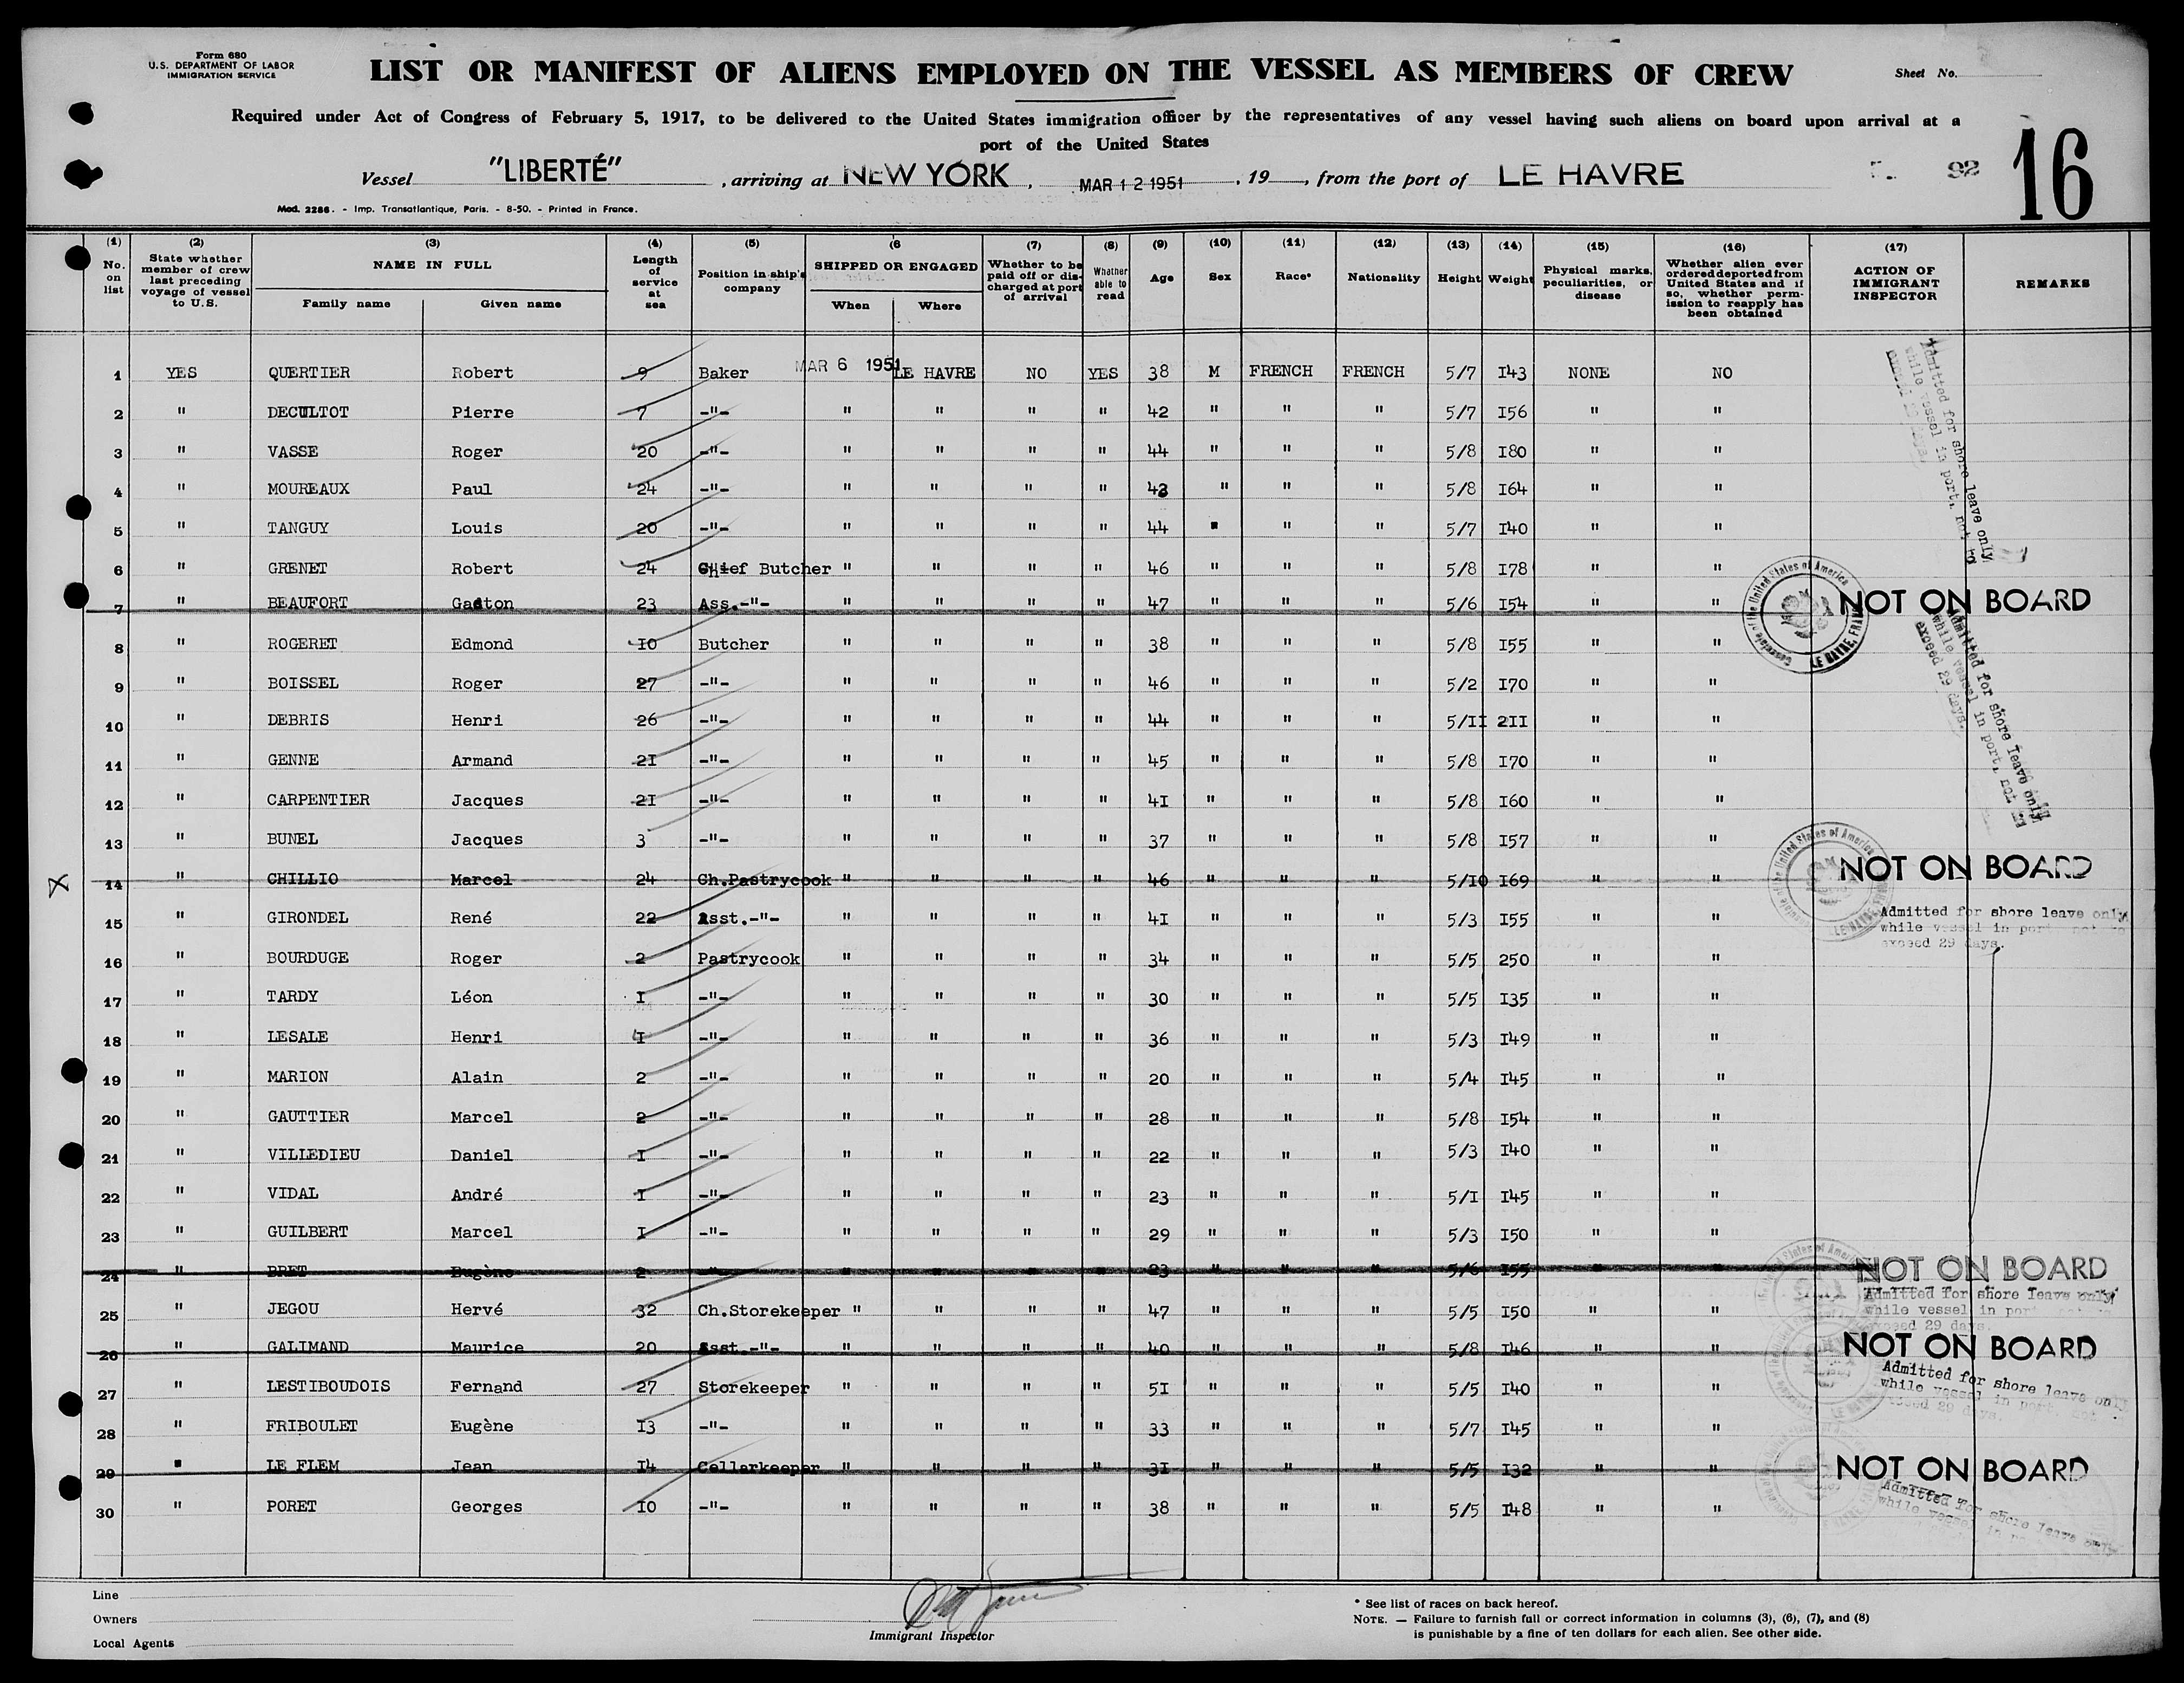 Form 680
U.S. DEPARTMENT OF LABOR
IMMIGRATION SERVICE
LIST OR MANIFEST OF ALIENS EMPLOYED ON THE VESSEL AS MEMBERS OF CREW
Sheet No.
Required under Act of Congress of February 5, 1917, to be delivered to the United States immigration officer by the representatives of any vessel having such aliens on board upon arrival at a
port of the United States
16
Vessel "LIBERTÉ" , arriving at NEW YORK , MAR 12 1951 , 19 , from the port of LE HAVRE 92
Mod. 2286. - Imp. Transatlantique, Paris. - 8-50. - Printed in France.
(1) No. on list
(2) State whether member of crew last preceding voyage of vessel to U.S.
(3) NAME IN FULL Family name Given name
(4) Length of service at sea
(5) Position in ship's company
(6 SHIPPED OR ENGAGED When Where
(7) Whether to be paid off or dis-charged at port of arrival
(8) Whether able to read
(9) Age
(10) Sex
(11) Race*
(12) Nationality
(13) Height
(14) Weight
(15) Physical marks, peculiarities, or disease
(16) Whether alien ever ordered deported from United States and if so, whether perm-ission to reapply has been obtained
(17) ACTION OF IMMIGRANT INSPECTOR
REMARKS
1 YES QUERTIER Robert 9 Baker MAR 6 1951 LE HAVRE NO YES 38 M FRENCH FRENCH 5/7 I43 NONE NO
2 " DECULTOT Pierre 7 -"- " " " " 42 " " " 5/7 I56 " "
3 " VASSE Roger 20 -"- " " " " 44 " " " 5/8 I80 " "
4 " MOUREAUX Paul 24 -"- " " " " 43 " " " 5/8 I64 " "
5 " TANGUY Louis 20 -"- " " " " 44 " " " 5/7 I40 " "
6 " GRENET Robert 24 Chief Butcher " " " " 46 " " " 5/8 I78 " "
7 " BEAUFORT Gaston 23 Ass.-"- " " " " 47 " " " 5/6 I54 " " NOT ON BOARD
8 " ROGERET Edmond IO Butcher " " " " 38 " " " 5/8 I55 " "
9 " BOISSEL Roger 27 -"- " " " " 46 " " " 5/2 I70 " "
10 " DEBRIS Henri 26 -"- " " " " 44 " " " 5/II 2II " "
11 " GENNE Armand 2I -"- " " " " 45 " " " 5/8 I70 " "
12 " CARPENTIER Jacques 2I -"- " " " " 4I " " " 5/8 I60 " "
13 " BUNEL Jacques 3 -"- " " " " 37 " " " 5/8 I57 " "
14 " CHILLIO Marcel 24 Ch.Pastrycook " " " " 46 " " " 5/IO I69 " " NOT ON BOARD
15 " GIRONDEL René 22 Asst.-"- " " " " 4I " " " 5/3 I55 " "
16 " BOURDUGE Roger 2 Pastrycook " " " " 34 " " " 5/5 250 " "
17 " TARDY Léon I -"- " " " " 30 " " " 5/5 I35 " "
18 " LESALE Henri I -"- " " " " 36 " " " 5/3 I49 " "
19 " MARION Alain 2 -"- " " " " 20 " " " 5/4 I45 " "
20 " GAUTTIER Marcel 2 -"- " " " " 28 " " " 5/8 I54 " "
21 " VILLEDIEU Daniel I -"- " " " " 22 " " " 5/3 I40 " "
22 " VIDAL André I -"- " " " " 23 " " " 5/I I45 " "
23 " GUILBERT Marcel I -"- " " " " 29 " " " 5/3 I50 " "
24 " BRET Eugène 2 -"- " " " " 23 " " " 5/6 I55 " " NOT ON BOARD
25 " JEGOU Hervé 32 Ch.Storekeeper " " " " 47 " " " 5/5 I50 " "
26 " GALIMAND Maurice 20 Asst.-"- " " " " 40 " " " 5/8 I46 " " NOT ON BOARD
27 " LESTIBOUDOIS Fernand 27 Storekeeper " " " " 5I " " " 5/5 I40 " "
28 " FRIBOULET Eugène I3 -"- " " " " 33 " " " 5/7 I45 " "
29 " LE FLEM Jean I4 Cellarkeeper " " " " 3I " " " 5/5 I32 " " NOT ON BOARD
30 " PORET Georges IO -"- " " " " 38 " " " 5/5 I48 " "
Admitted for shore leave only
while vessel in port, not to
Admitted for shore leave only
while vessel in port, not to
exceed 29 days.
Admitted for shore leave only
while vessel in port not to
exceed 29 days.
Admitted for shore leave only
while vessel in port
exceed 29 days.
Admitted for shore leave only
while vessel in port, not
29 days.
Admitted for shore leave only
while vessel in
Line
Owners
Local Agents
Immigrant Inspector
* See list of races on back hereof.
NOTE. — Failure to furnish full or correct information in columns (3), (6), (7), and (8)
is punishable by a fine of ten dollars for each alien. See other side.